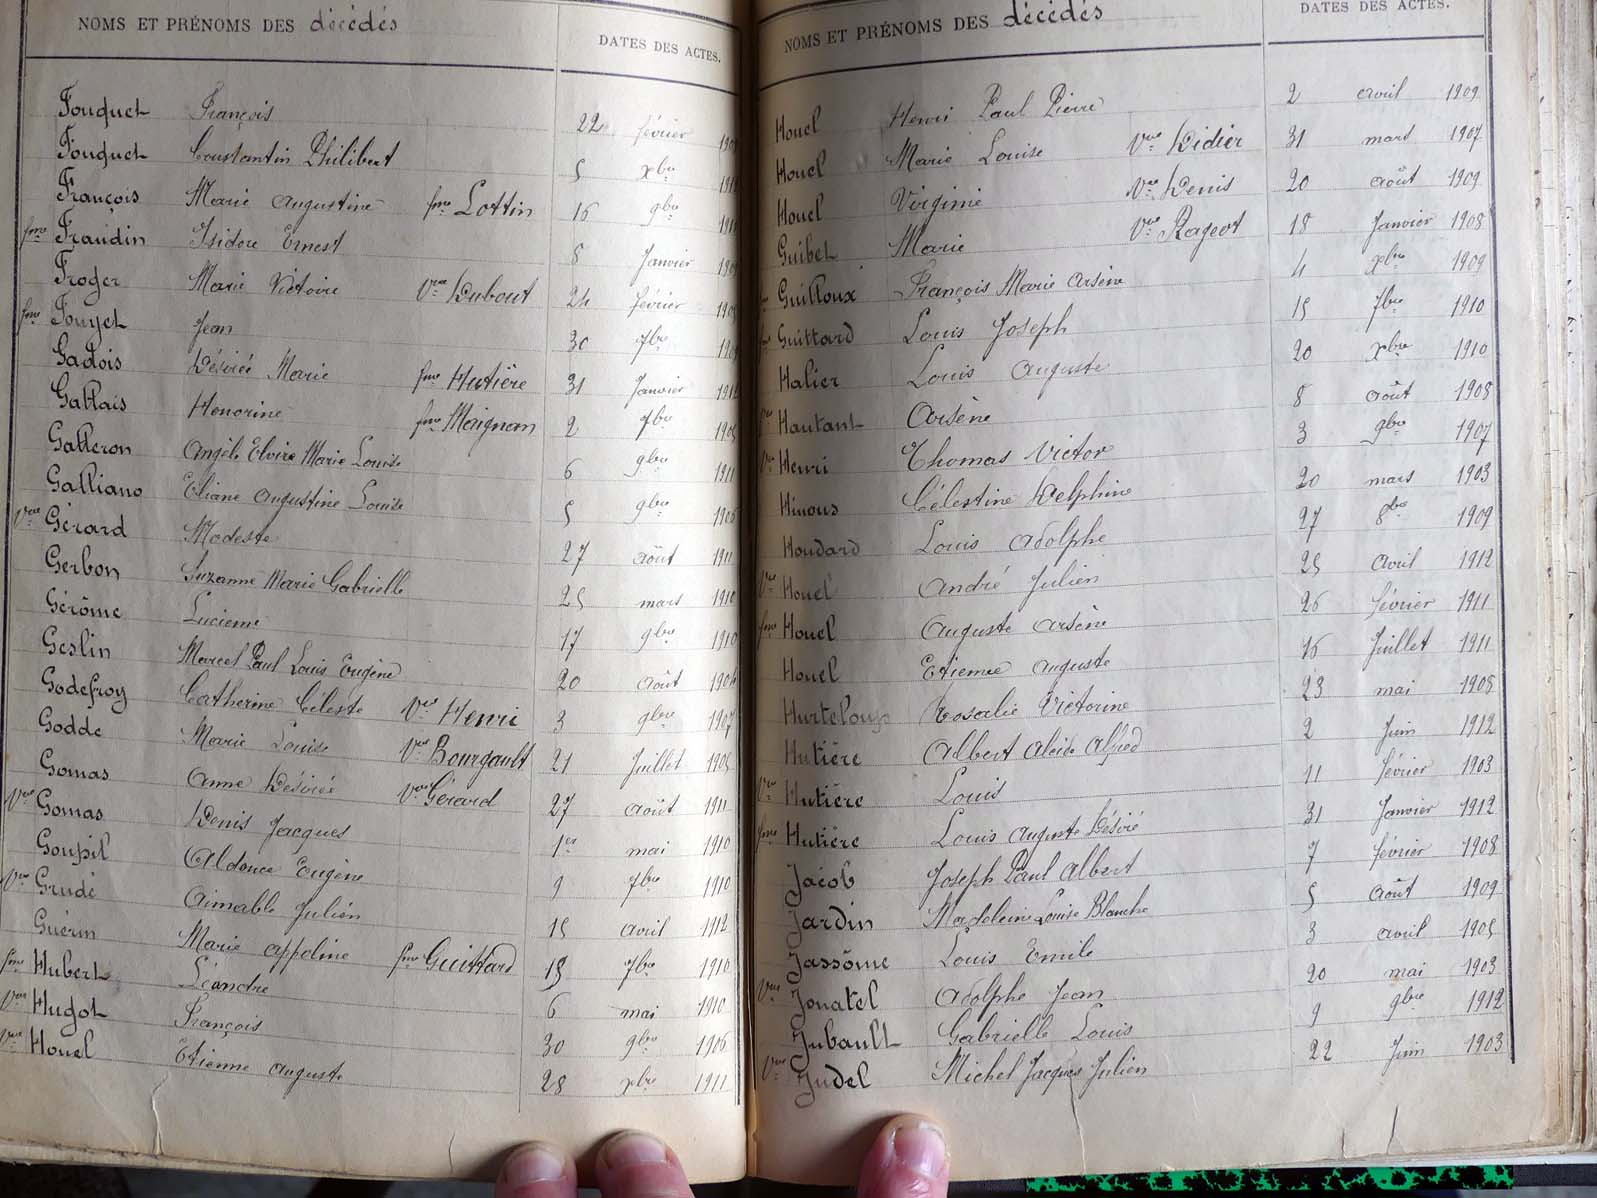 NOMS ET PRÉNOMS DES décédés DATES DES ACTES.
Fouquet François 22 février
Fouquet Constantin Philibert 5 xbre
François Marie Augustine fme Lottin 16 9bre
Fraudin Isidore Ernest 8 Janvier
Froger Marie Victoire Vve Dubout 24 février
Jean 30 7bre
Gadois Désirée Marie fme Hutière 31 Janvier
Gallais Honorine fme Maignan 2 7bre
Galleron Angèle Elvire Marie Louise 6 9bre 1911
Galliano Eliane Augustine Louise 5 9bre
Gérard Modeste 27 août 1911
Gerbon Suzanne Marie Gabrielle 25 mars 1910
Gérôme Lucienne 17 9bre 1910
Geslin Marcel Paul Louis Eugène 20 août
Godefroy Catherine Céleste Vve Henri 3 9bre 1907
Godde Marie Louise Vve Bourgault 21 Juillet 1905
Gomas Anne Désirée Vve Gérard 27 août 1911
Gomas Denis Jacques 1er mai 1910
Goupil Aldonce Eugène 9 7bre 1910
Grudé Aimable Julien 15 avril 1912
Guérin Marie Appoline fme Guittard 15 7bre 1910
Hubert Léandre 6 mai 1910
Hugot François 30 9bre 1906
Houel Etienne Auguste 28 xbre 1911
NOMS ET PRÉNOMS DES décédés DATES DES ACTES.
Houel Henri Paul Pierre 2 avril 1909
Houel Marie Louise Vve Didier 31 mars 1907
Houel Virginie Vve Denis 20 août 1909
Guibet Marie Vve Rageot 18 Janvier 1908
Guilloux François Marie Arsène 4 xbre 1909
fme Guittard Louis Joseph 15 7bre 1910
Halier Louis Auguste 20 xbre 1910
Hautant Arsène 8 août 1908
Vve Henri Thomas Victor 3 9bre 1907
Hinous Célestine Delphine 20 mars 1903
Houdard Louis Adolphe 27 8bre 1909
Vve Houel André Julien 25 avril 1912
fme Houel Auguste Arsène 26 février 1911
Houel Etienne Auguste 16 Juillet 1911
Hurteloup Rosalie Victorine 23 mai 1908
Hutière Albert Alcide Alfred 2 Juin 1912
Vve Hutière Louis 11 février 1903
fme Hutière Louis Auguste Désiré 31 Janvier 1912
Jacob Joseph Paul Albert 7 février 1908
Jardin Madeleine Louise Blanche 5 août 1909
Jassôme Louis Emile 3 avril 1905
Vve Jonatel Adolphe Jean 20 mai 1903
Jubault Gabrielle Louis 9 9bre 1912
Vve Judel Michel Jacques Julien 22 Juin 1903